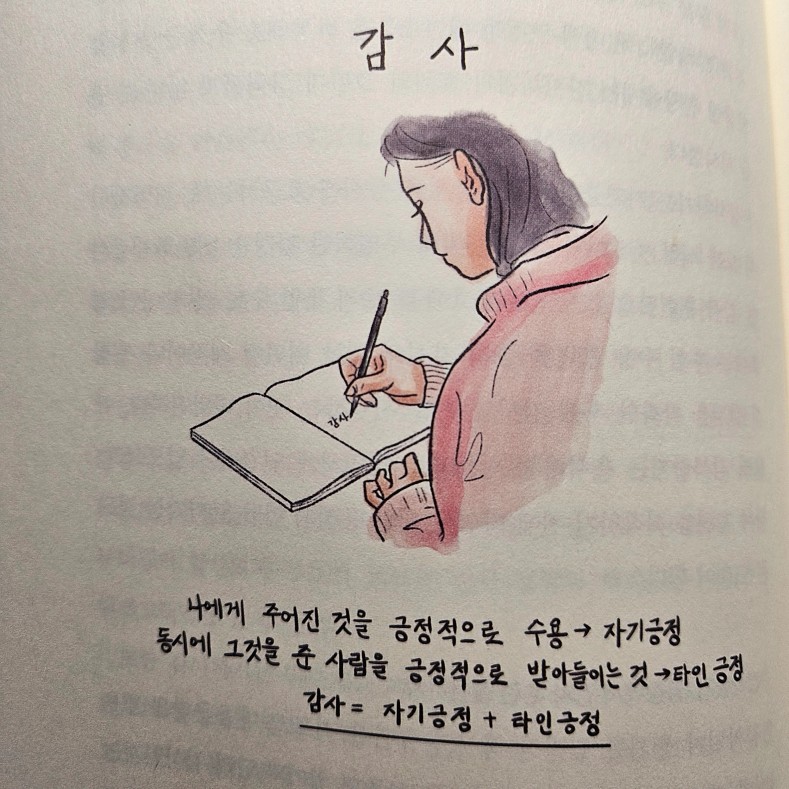 감 사
감사
나에게 주어진 것을 긍정적으로 수용 → 자기긍정
동시에 그것을 준 사람을 긍정적으로 받아들이는 것 → 타인 긍정
감사 = 자기긍정 + 타인긍정